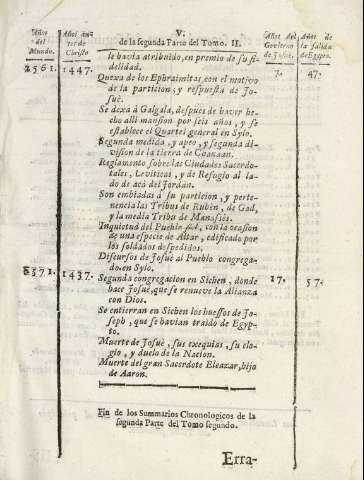 V.
de la segunda Parte del Tomo. II.
Años
del
Mundo.
Años an-
tes de
Christo
Años del
Govierno
de Josuè.
Años de
la salida
de Egypto.
le havia atribuido, en premio de su fi-
delidad.
2561. 1447. Quexa de los Ephraimitas, con el motivo 7. 47.
de la particion, y respuesta de Jo-
suè.
Se dexa à Galgala, despues de haver he-
cho alli mansion por seis años, y se
establece el Quartel general en Sylo.
Segunda medida, y apeo, y segunda di-
vision de la tierra de Canaan.
Reglamento sobre las Ciudades Sacerdo-
tales, Leviticas, y de Refugio al la-
do de acà del Jordàn.
Son embiadas à su particion, y perte-
nencia las Tribus de Rubèn, de Gad,
y la media Tribu de Manassès.
Inquietud del Pueblo fiel, con la ocasion
de una especie de Altar, edificado por
los soldados despedidos.
Discursos de Josuè al Pueblo congrega-
do en Sylo.
2571. 1437. Segunda congregacion en Sichen, donde 17. 57.
hace Josuè, que se renueve la Alianza
con Dios.
Se entierran en Sichen los huessos de Jo-
seph, que se havian traido de Egyp-
to.
Muerte de Josuè, sus exequias, su elo-
gio, y duelo de la Nacion.
Muerte del gran Sacerdote Eleazar, hijo
de Aaron.
Fin de los Summarios Chronologicos de la
segunda Parte del Tomo segundo.
Erra-